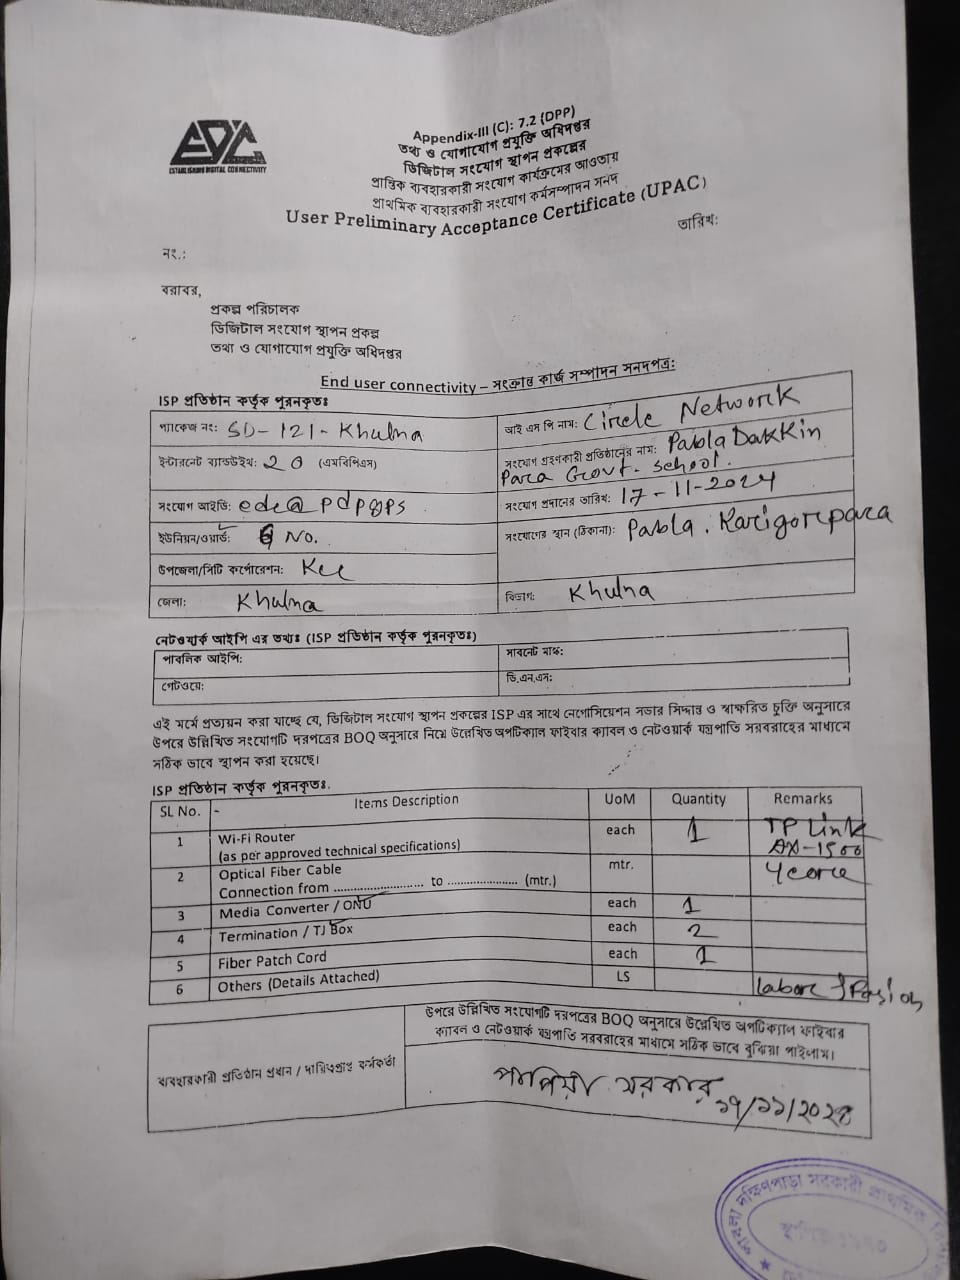 EDC
ESTABLISHING DIGITAL CONNECTIVITY
Appendix-III (C): 7.2 (DPP)
তথ্য ও যোগাযোগ প্রযুক্তি অধিদপ্তর
ডিজিটাল সংযোগ স্থাপন প্রকল্পের
প্রান্তিক ব্যবহারকারী সংযোগ কার্যক্রমের আওতায়
প্রাথমিক ব্যবহারকারী সংযোগ কর্মসম্পাদন সনদ
User Preliminary Acceptance Certificate (UPAC)
তারিখ:
নং.:
বরাবর,
প্রকল্প পরিচালক
ডিজিটাল সংযোগ স্থাপন প্রকল্প
তথ্য ও যোগাযোগ প্রযুক্তি অধিদপ্তর
End user connectivity – সংক্রান্ত কার্জ সম্পাদন সনদপত্র:
ISP প্রতিষ্ঠান কর্তৃক পূরনকৃতঃ
প্যাকেজ নং: SD-121-Khulna
আই এস পি নাম: Circle Network
ইন্টারনেট ব্যান্ডউইথ: 20 (এমবিপিএস)
সংযোগ গ্রহণকারী প্রতিষ্ঠানের নাম: Pabla Dakkin
Para Govt. School.
সংযোগ আইডি: edc@pdpgps
সংযোগ প্রদানের তারিখ: 17-11-2024
ইউনিয়ন/ওয়ার্ড: No.
সংযোগের স্থান (ঠিকানা): Pabla, Karigorpara
উপজেলা/সিটি কর্পোরেশন: Kcc
জেলা: Khulna
বিভাগ: Khulna
নেটওয়ার্ক আইপি এর তথ্যঃ (ISP প্রতিষ্ঠান কর্তৃক পূরনকৃতঃ)
পাবলিক আইপি:
সাবনেট মাস্ক:
গেটওয়ে:
ডি.এন.এস:
এই মর্মে প্রত্যয়ন করা যাচ্ছে যে, ডিজিটাল সংযোগ স্থাপন প্রকল্পের ISP এর সাথে নেগোসিয়েশন সভার সিদ্দান্ত ও স্বাক্ষরিত চুক্তি অনুসারে
উপরে উল্লিখিত সংযোগটি দরপত্রের BOQ অনুসারে নিম্নে উল্লেখিত অপটিক্যাল ফাইবার ক্যাবল ও নেটওয়ার্ক যন্ত্রপাতি সরবরাহের মাধ্যমে
সঠিক ভাবে স্থাপন করা হয়েছে।
ISP প্রতিষ্ঠান কর্তৃক পূরনকৃতঃ.
SL No. - Items Description UoM Quantity Remarks
1 Wi-Fi Router each 1 TP Link
(as per approved technical specifications) AX-1500
2 Optical Fiber Cable mtr. 4 core
Connection from ........................... to ..................... (mtr.)
3 Media Converter / ONU each 1
4 Termination / TJ Box each 2
5 Fiber Patch Cord each 1
6 Others (Details Attached) LS Labore
উপরে উল্লিখিত সংযোগটি দরপত্রের BOQ অনুসারে উল্লেখিত অপটিক্যাল ফাইবার
ক্যাবল ও নেটওয়ার্ক যন্ত্রপাতি সরবরাহের মাধ্যমে সঠিক ভাবে বুঝিয়া পাইলাম।
ব্যবহারকারী প্রতিষ্ঠান প্রধান / দায়িত্বপ্রাপ্ত কর্মকর্তা
পাপিয়া সরকার
১৭/১১/২০২৪
পাবলা দক্ষিণপাড়া সরকারী প্রাথমিক